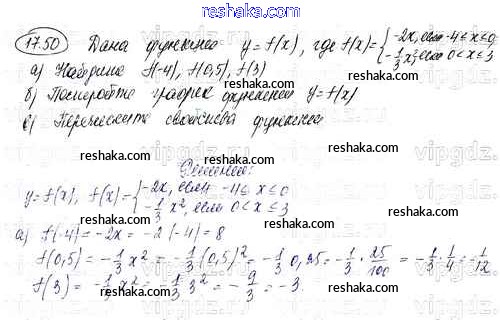 reshaka.ru
17.50 Дана функция y=f(x), где f(x)={-2x, если -4≤x≤0
-1/3x², если 0<x≤3
а) Найдите f(-4), f(0,5), f(3)
б) Постройте график функции y=f(x)
в) Перечислите свойства функции
reshaka.ru reshaka.ru reshaka.ru
Решение:
y=f(x), f(x)={-2x, если -4≤x≤0
-1/3 x², если 0<x≤3
reshaka.ru reshaka.ru
а) f(-4)=-2x=-2(-4)=8
f(0,5)=-1/3x²=-1/3(0,5)²=-1/3 0,25=-1/3·25/100=-1/3·1/4=-1/12
f(3)=-1/3x²=-1/3 3²=-9/3=-3
reshaka.ru reshaka.ru reshaka.ru